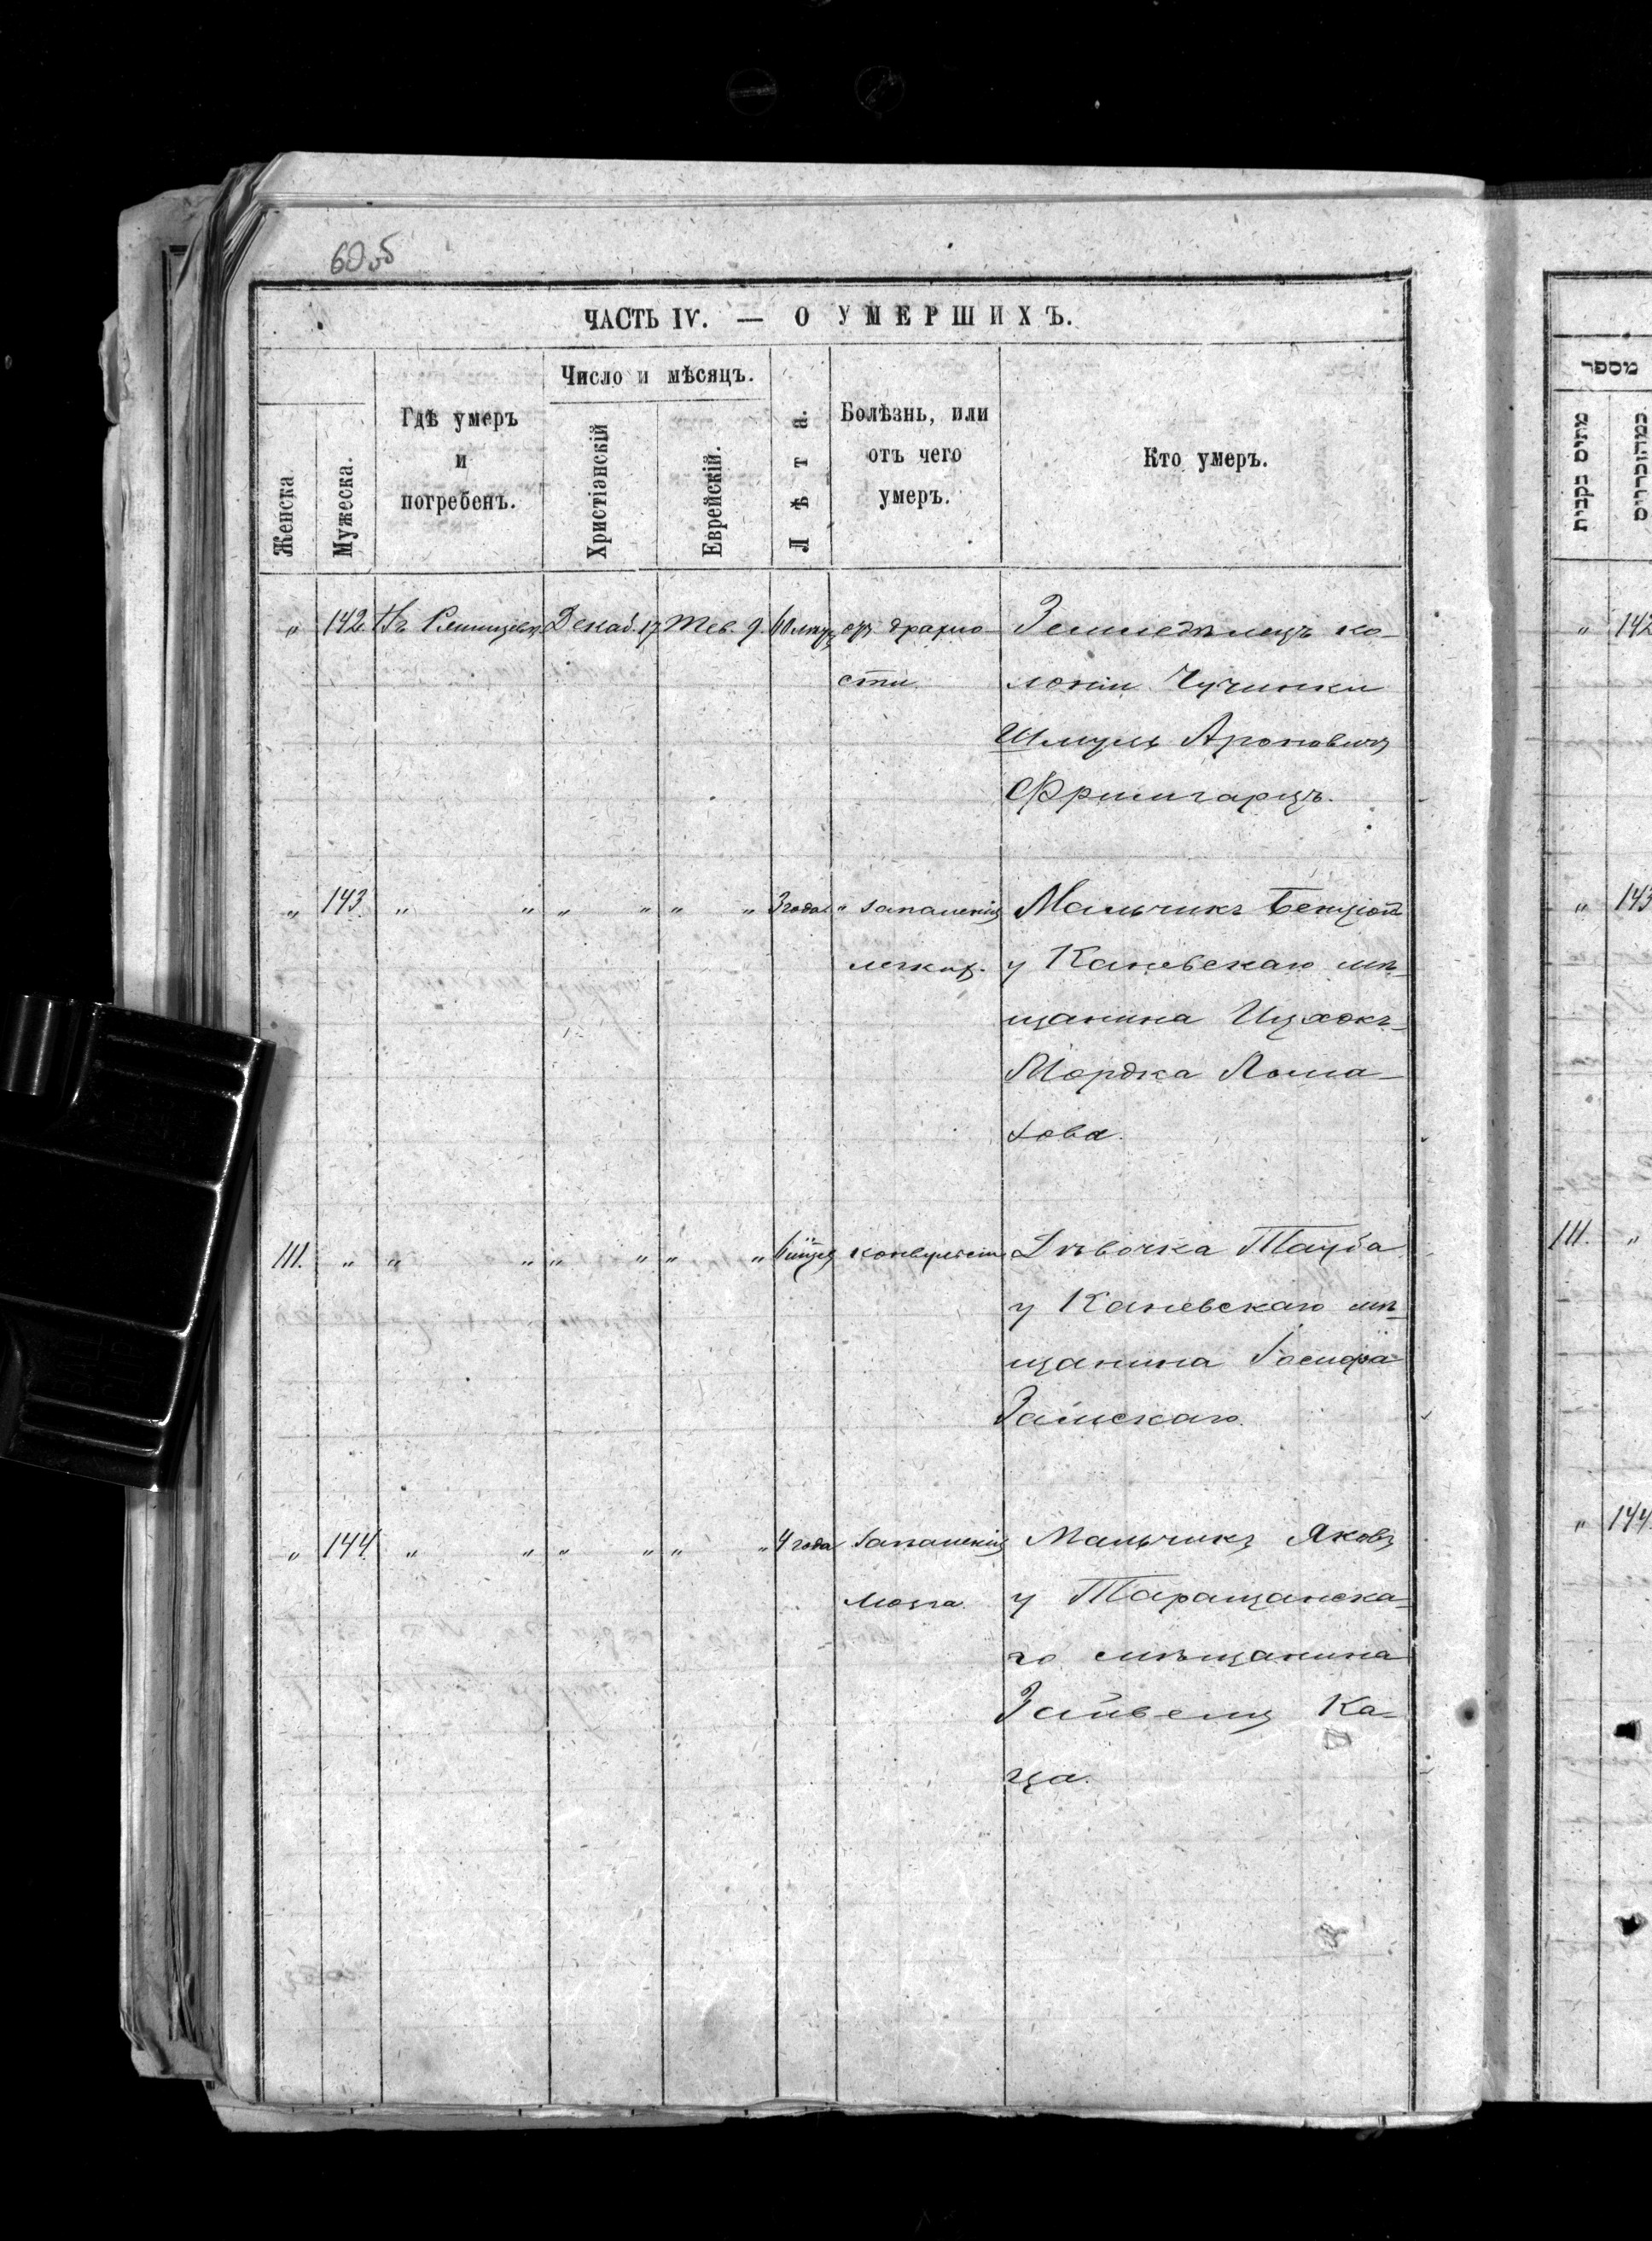 60об
ЧАСТЬ IV. — О УМЕРШИХЪ.
Женска
Мужеска.
Гдѣ умеръ
и
погребенъ.
Число и мѣсяцъ.
Христіанскій
Еврейскій.
Лѣта.
Болѣзнь, или
отъ чего
умеръ.
Кто умеръ.
„ 142 Въ Декаб. 17 Тев. 9. отъ дряхло- Земледѣлецъ ко-
сти. лоніи Чучинки
Шмуль Ароновичъ
„ 143. „ „ „ „ „ „ 3 года „ запаленія Мальчикъ Бенціонъ
легкихъ. у Каневскаго мѣ-
щанина Ицхокъ-
Мордка
111. „ „ „ „ „ „ „ конвульсіи Дѣвочка Тауба
у Каневскаго мѣ-
щанина Іосифа
Заискаго.
„ 144. „ „ „ „ „ „ 4 года запаленія Мальчикъ Яковъ
мозга. у Таращанска-
го мѣщанина
Зайвель Ка-
ца.
מספר
מתים בקבית
כמהזכרים
„ 142
„ 143
111. „
„ 144.